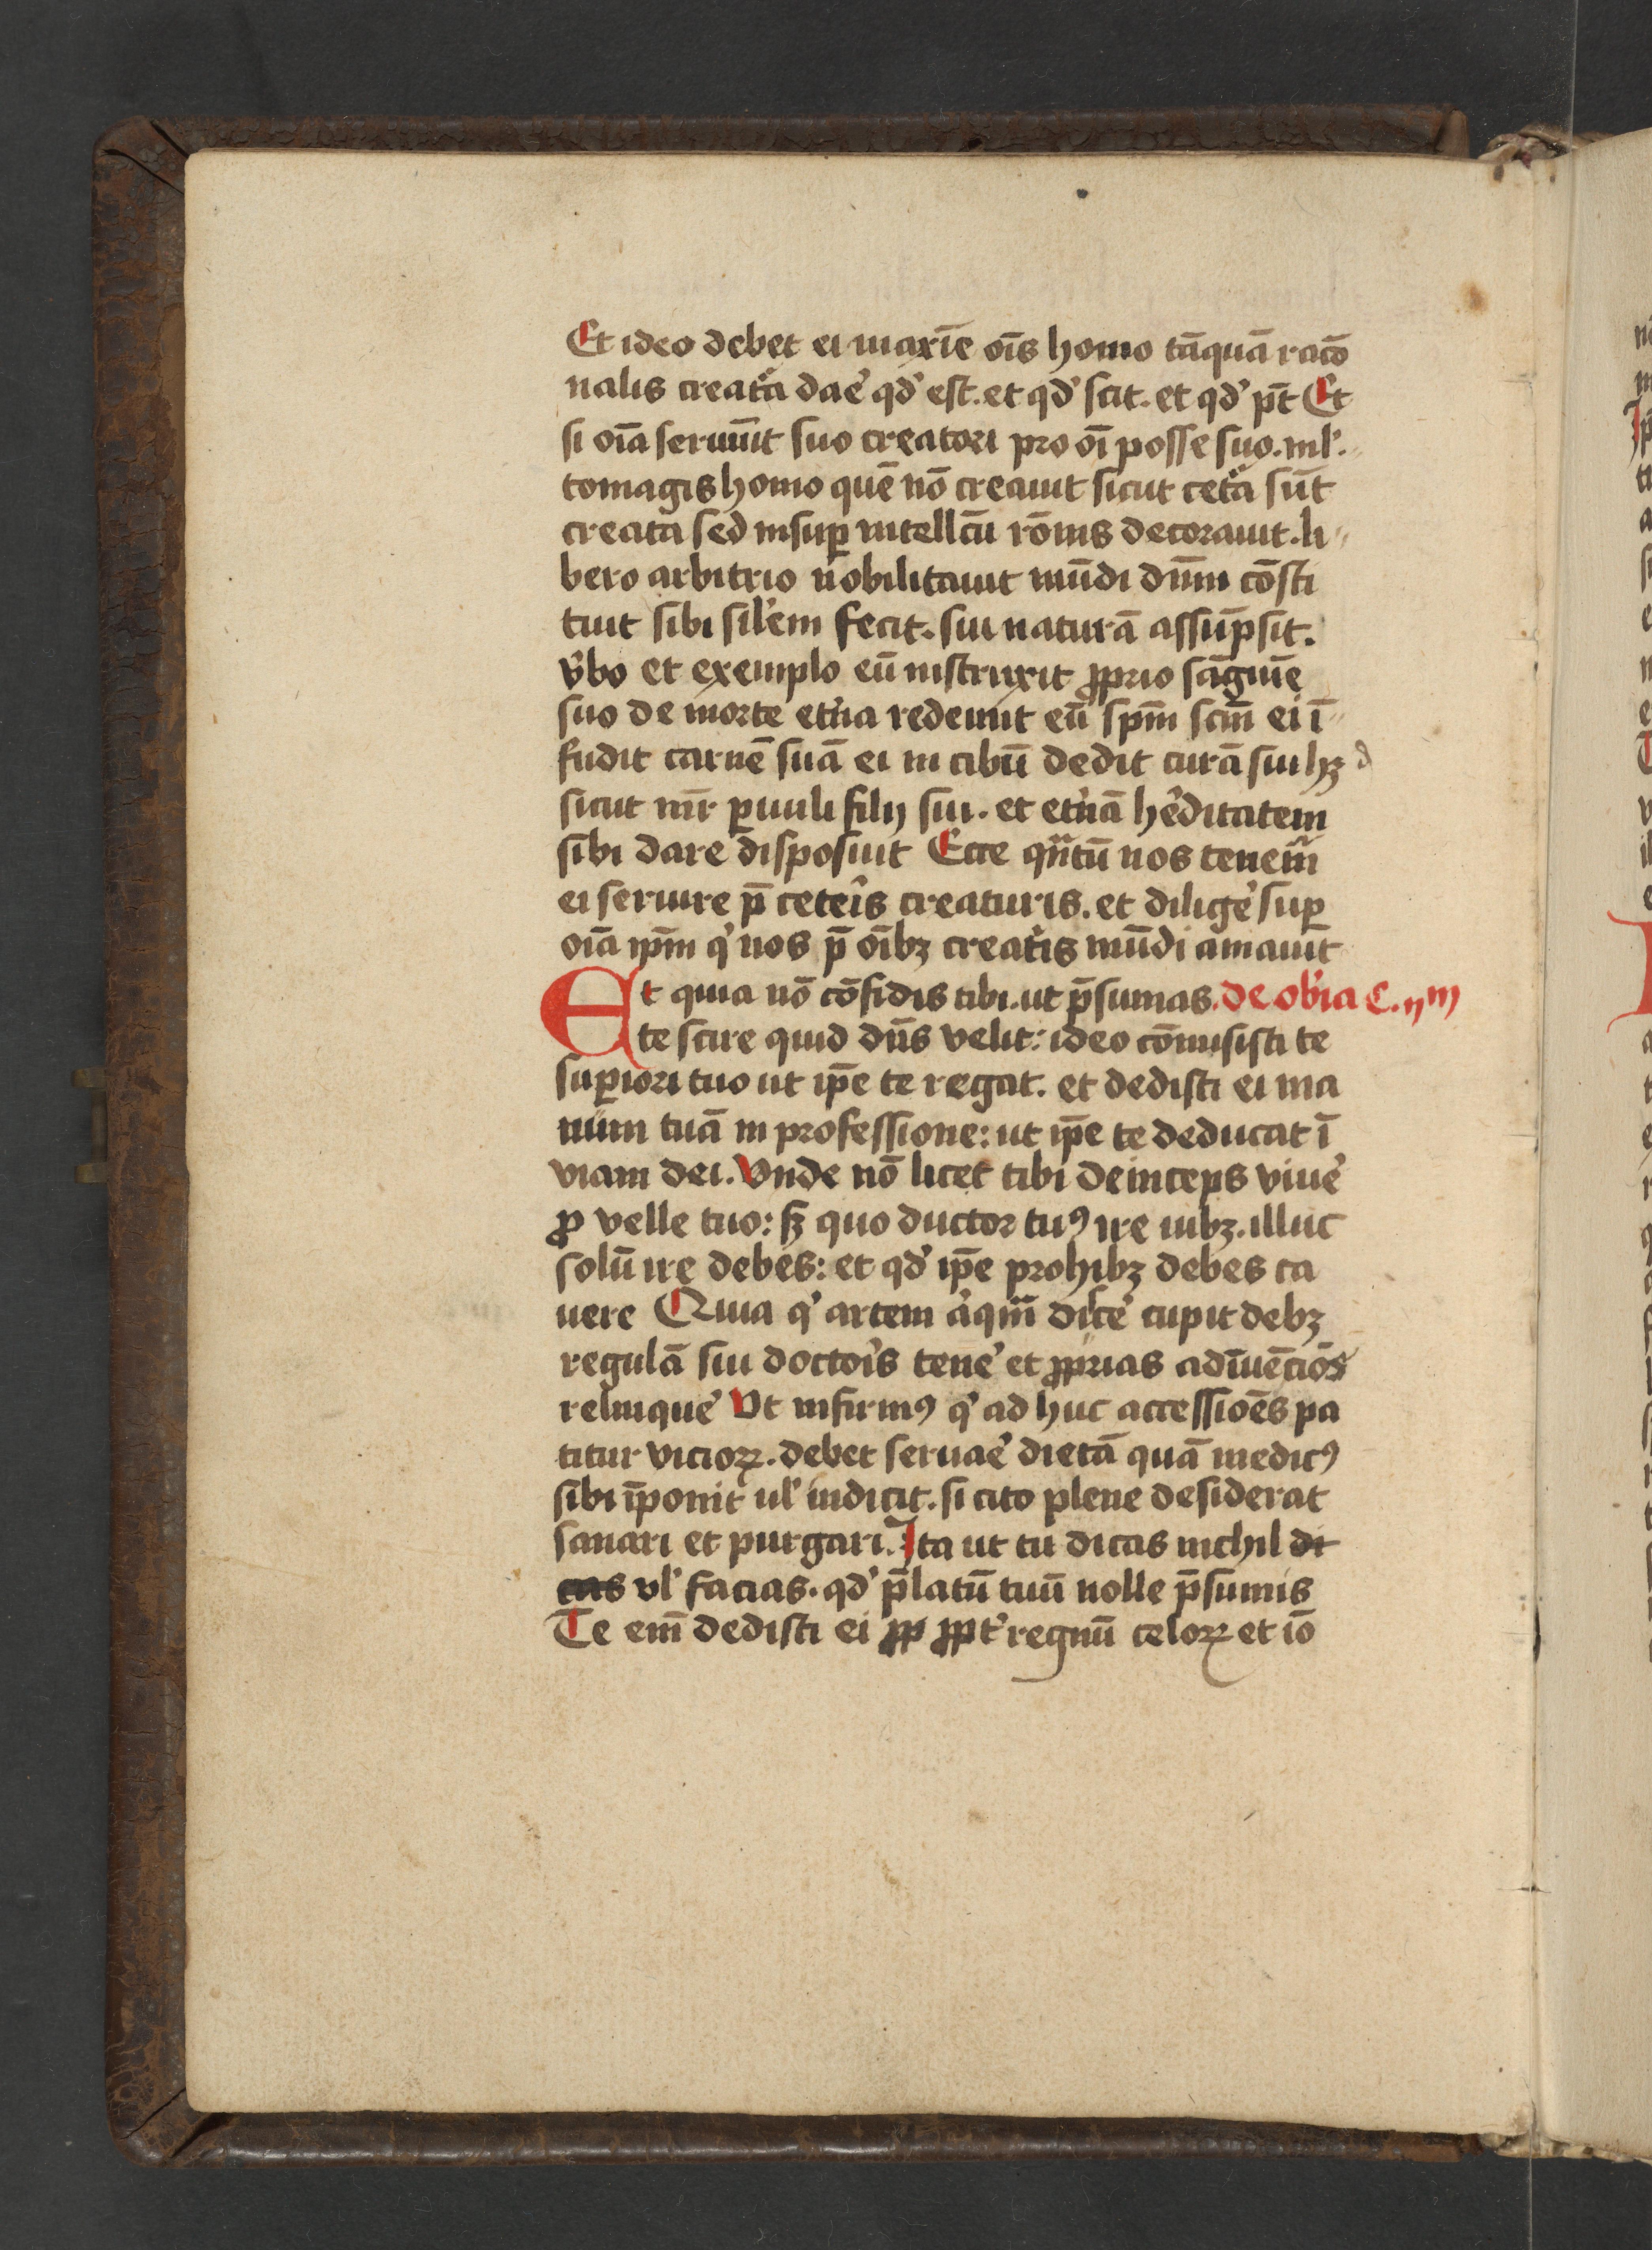 Et ideo debet ei maxīe oīs homo tāquā racō
nalis creatᵃa daē qd' est. et qd' scit. et qd' pt̄ Et
si oīa seruiūt suo creatori pro oī posse suo. ml'-
tomagis homo quē nō creauit sicut cetᵃa sūt
creata sed insuꝑ intellc̄u rōnis decorauit. li-
bero arbitrio nobilitauit mūdi dn̄m cōsti
tuit sibi sil'em fecit. sui naturā assūpsit.
v̓bo et exemplo eū instruxit ꝓprio sāguīe
suo de morte et̓na redemit eū sp̄m scm̄ ei ī-
fudit carnē suā ei in cibū dedit curā sui hꝫ
sicut mr̄ ꝑuuli filij sui. et et̓nā he̓ditatem
sibi dare disposuit Ecce qᵃntū nos tenem̃
ei seruire p̄ cetēis creaturis. et dilige̓ suꝑ
oīa ip̄m q' nos p̄ oībꝫ creatᵉis mūdi amauit
Et quia nō cōfidis tibi. ut p̄sumas. de ob'ia c. ıııȷ
te scire quid dn̄s velit: ideo cōmisisti te
suꝑiori tuo ut ip̄e te regat. et dedisti ei ma
num tuā in professione: ut ip̄e te deducat ī
viam dei. Vnde nō licet tibi deinceps viue̓
ꝓ velle tuo: sꝫ quo ductor tuꝰ ire iubꝫ. illuc
solū ire debes: et qd' ip̄e prohibꝫ debes ca
uere Quia q' artem a̓qᵃm disce̓ cupit debꝫ
regulā sui docto̓is tene̓ et ꝓprias adīuēciōs
relinque̓ Vt infirmꝰ q' ad huc accessiōes pa
titur vicioꝝ. debet seruae̓ dietā quā medicꝰ
sibi īponit ul' indicit. si cito plene desiderat
sanari et purgari. Ita ut tu dicas nichil di
cas vl' facias. qd' p̄latū tuū nolle p̄sumis
Te em̄ dedisti ei ꝓp ꝓpt' regnū celoꝝ et iō